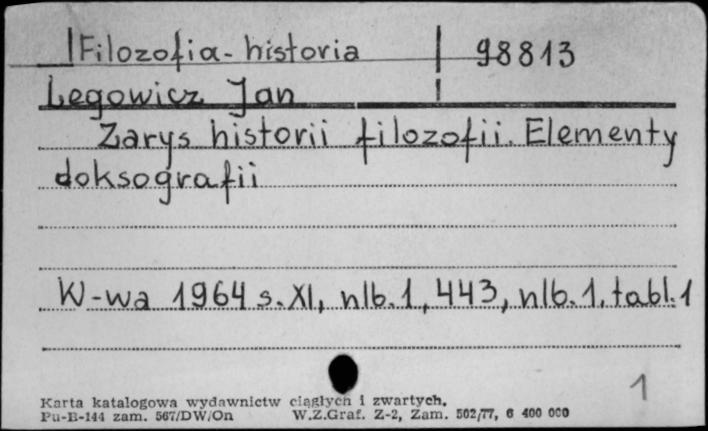 Filozofia - historia 98813
Legowicz Jan
Zarys historii filozofii. Elementy
doksografii
W-wa 1964 s. XI, nlb. 1, 443, nlb. 1, tabl. 1
1
Karta katalogowa wydawnictw ciągłych i zwartych.
Pu-B-144 zam. 567/DW/On W.Z.Graf. Z-2, Zam. 502/77, 6 400 000